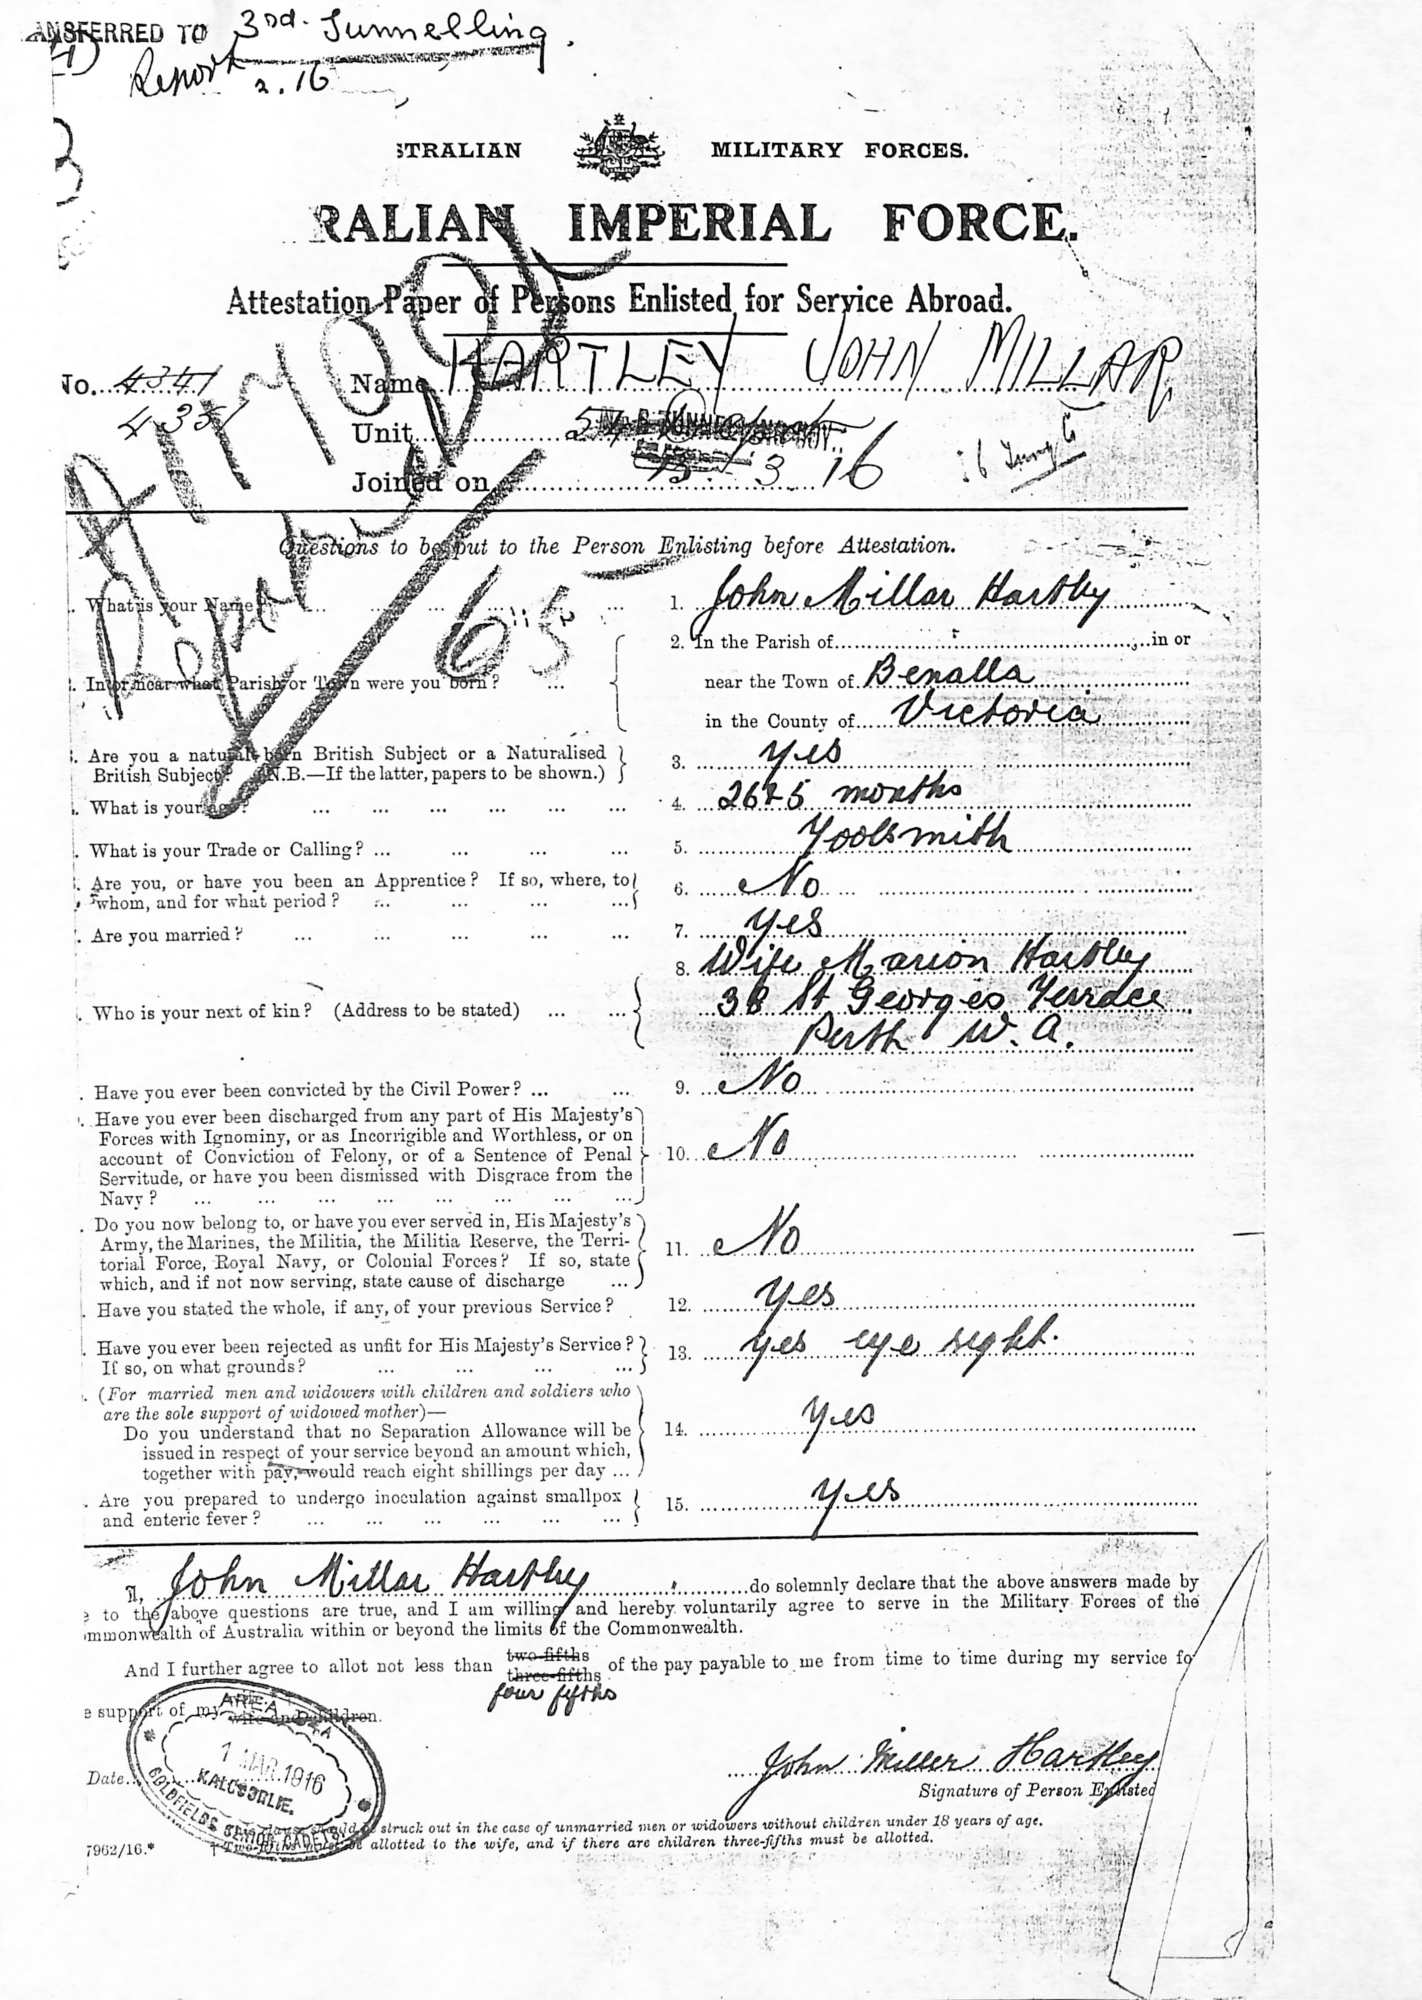 ANSFERRED TO 3rd. Tunnelling.
Report 2.16
STRALIAN MILITARY FORCES.
RALIAN IMPERIAL FORCE.
Attestation Paper of Persons Enlisted for Service Abroad.
No. 4341 Name HARTLEY JOHN MILLAR
Unit
Joined on 3. 16
Questions to be put to the Person Enlisting before Attestation.
65
. What is your Name? ... ... ... ... ... 1. John Millar Hartley
2. In the Parish of in or
. In or near what Parish or Town were you born? ... near the Town of Benalla
in the County of Victoria
. Are you a natural born British Subject or a Naturalised
British Subject? (N.B.—If the latter, papers to be shown.) 3. yes
. What is your age? ... ... ... ... ... ... 4. 26 & 5 months
. What is your Trade or Calling? ... ... ... ... 5. Toolsmith
. Are you, or have you been an Apprentice? If so, where, to
whom, and for what period? ... ... ... ... 6. No
. Are you married? ... ... ... ... ... 7. yes
8. Wife Marion Hartley
. Who is your next of kin? (Address to be stated) ... ... 38 St Georges Terrace
Perth W. A.
. Have you ever been convicted by the Civil Power? ... ... 9. No
. Have you ever been discharged from any part of His Majesty's
Forces with Ignominy, or as Incorrigible and Worthless, or on
account of Conviction of Felony, or of a Sentence of Penal 10. No
Servitude, or have you been dismissed with Disgrace from the
Navy? ... ... ... ... ... ... ... ...
. Do you now belong to, or have you ever served in, His Majesty's
Army, the Marines, the Militia, the Militia Reserve, the Terri-
torial Force, Royal Navy, or Colonial Forces? If so, state 11. No
which, and if not now serving, state cause of discharge ...
. Have you stated the whole, if any, of your previous Service? 12. yes
. Have you ever been rejected as unfit for His Majesty's Service? 13. yes eye sight.
If so, on what grounds? ... ... ... ...
. (For married men and widowers with children and soldiers who
are the sole support of widowed mother)—
Do you understand that no Separation Allowance will be 14. yes
issued in respect of your service beyond an amount which,
together with pay, would reach eight shillings per day ...
. Are you prepared to undergo inoculation against smallpox
and enteric fever? ... ... ... ... ... ... 15. yes
I, John Millar Hartley do solemnly declare that the above answers made by
e to the above questions are true, and I am willing and hereby voluntarily agree to serve in the Military Forces of the
mmonwealth of Australia within or beyond the limits of the Commonwealth.
And I further agree to allot not less than two-fifths three-fifths of the pay payable to me from time to time during my service fo
four fifths
e support of my wife and children.
AREA
1 MAR. 1916
KALGOORLIE.
GOLDFIELDS SENIOR CADETS.
Date
John Miller Hartley
Signature of Person Enlisted
struck out in the case of unmarried men or widowers without children under 18 years of age.
7962/16.* † Two-fifths must be allotted to the wife, and if there are children three-fifths must be allotted.